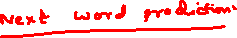 Next word prediction.